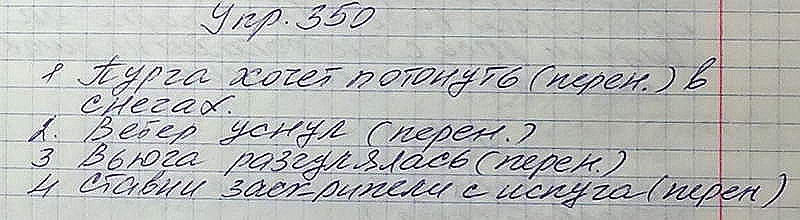 Упр. 350
1 Пурга хочет потонуть (перен.) в
снегах.
2. Ветер уснул (перен.)
3 Вьюга разгулялась (перен.)
4 Ставни заск-рипели с испуга (перен)